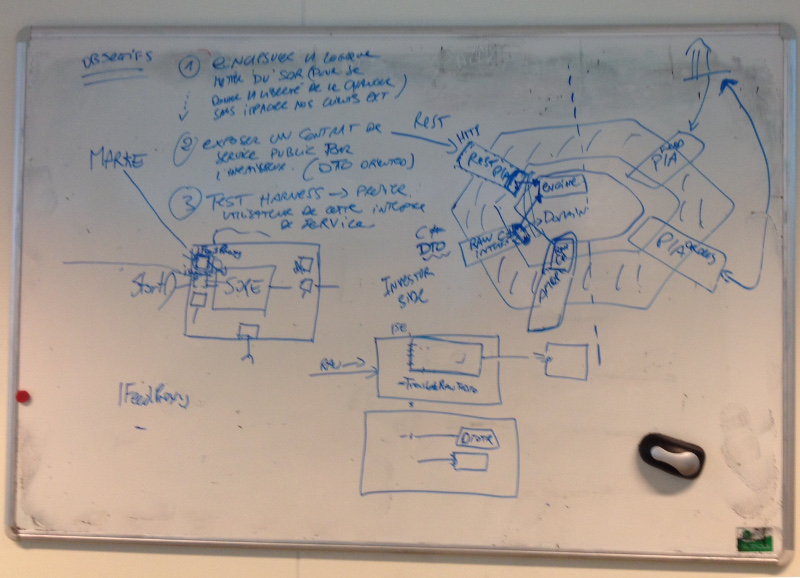 OBJECTIFS
① ENCAPSULER LA LOGIQUE
METIER DU SOR (POUR SE
DONNER LA LIBERTÉ DE LE CHANGER
SANS IMPACTER NOS CLIENTS EXT)
② EXPOSER UN CONTRAT DE
SERVICE PUBLIC POUR
L'INVESTISSEUR. (DTO ORIENTED)
③ TEST HARNESS → PREMIER
UTILISATEUR DE CETTE INTERFACE
DE SERVICE
REST
HTTP
REST
PIA
ENGINE
Domain
FEED
PIA
PIA
ORDERS
C#
DTO
RAW C#
INTEG
INVESTOR
SIDE
MARKE
IFeedProxy
Start()
SORE
RAW
IFeedProxy
-
Drone